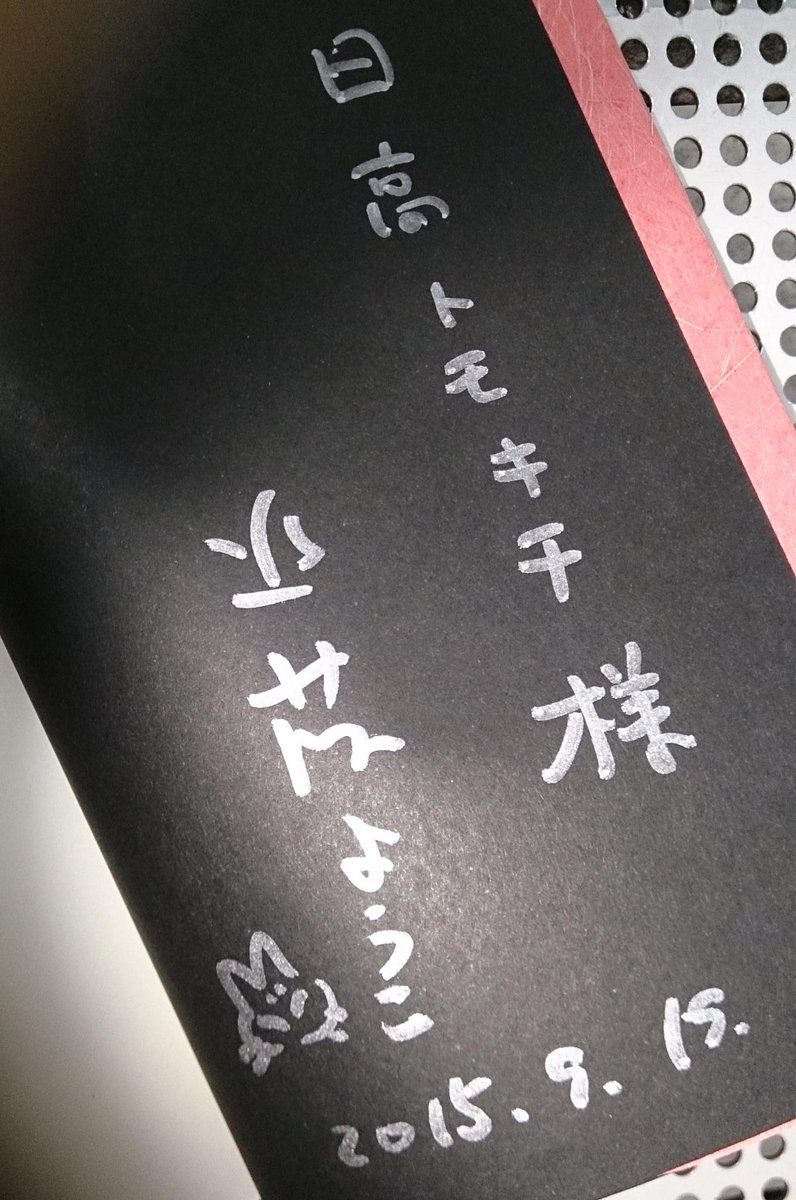 日高トモキチ様
近藤ようこ
2015.9.15.